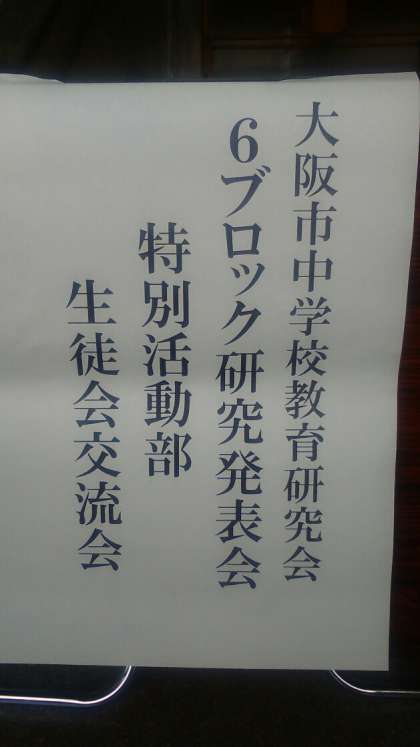 大阪市中学校教育研究会
6ブロック研究発表会
特別活動部
生徒会交流会